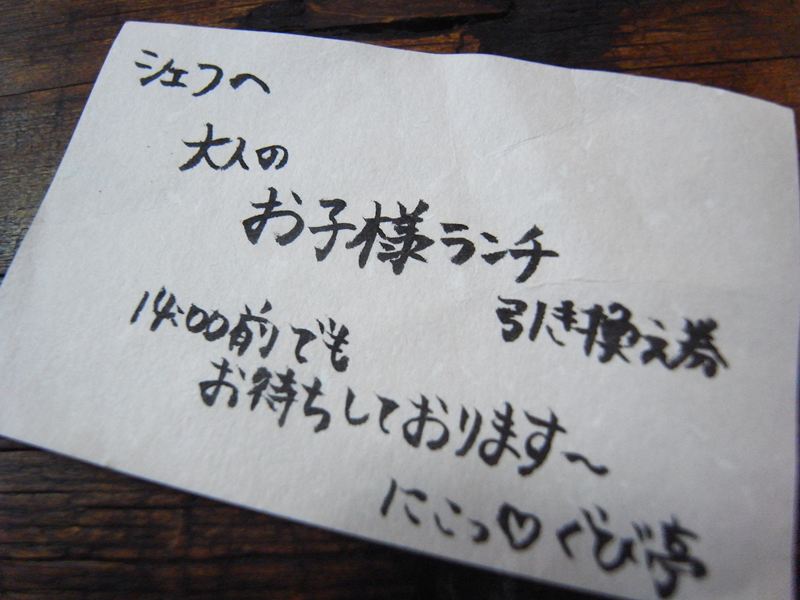 シェフへ
大人の
お子様ランチ
引き換え券
14:00前でも
お待ちしております～
にこっ♡ぐび亭